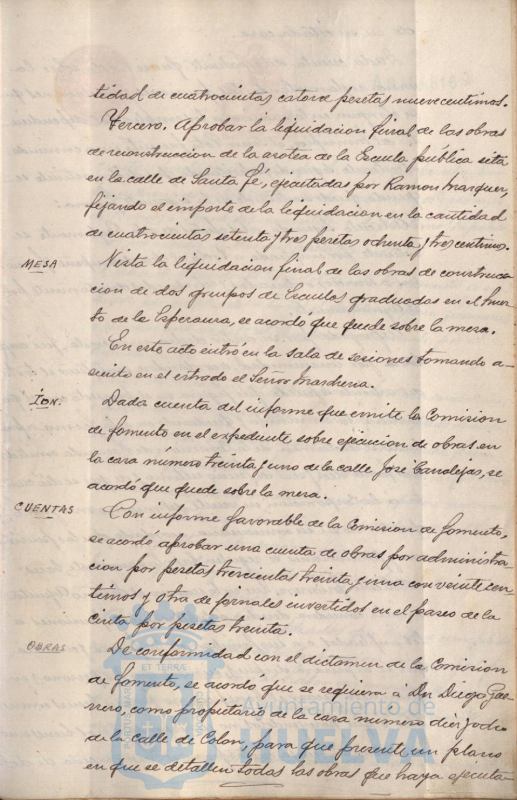 tidad de cuatrocientas catorce pesetas nueve centimos.
Tercero. Aprobar la liquidacion final de las obras
de reconstruccion de la azotea de la Escuela pública sita
en la calle de Santa Fé, ejecutadas por Ramon Marquez,
fijando el importe de la liquidacion en la cantidad
de cuatrocientas setenta y tres pesetas ochenta y tres centimos.
MESA
Vista la liquidacion final de las obras de construcc
cion de dos grupos de Escuelas graduadas en el Huer
to de la Esperanza, se acordó que quede sobre la mesa.
En este acto entró en la sala de sesiones tomando a-
siento en el estrado el Señor Mascheria.
ÍDN.
Dada cuenta del informe que emite la Comision
de Fomento en el expediente sobre ejecucion de obras en
la casa número treinta y uno de la calle José Canalejas, se
acordó que quede sobre la mesa.
CUENTAS
Con informe favorable de la Comision de Fomento,
se acordó aprobar una cuenta de obras por administra
cion por pesetas trescientas treinta y una con veinte cen
timos y otra de jornales invertidos en el paseo de la
cinta por pesetas treinta.
OBRAS
De conformidad con el dictamen de la Comision
de Fomento, se acordó que se requiera á Dn Diego Gue
rrero, como propietario de la casa número diez y ocho
de la calle de Colon, para que presente un plano
en que se detallen todas las obras que haya ejecuta-
ET TERRAE
Ayuntamiento de
HUELVA